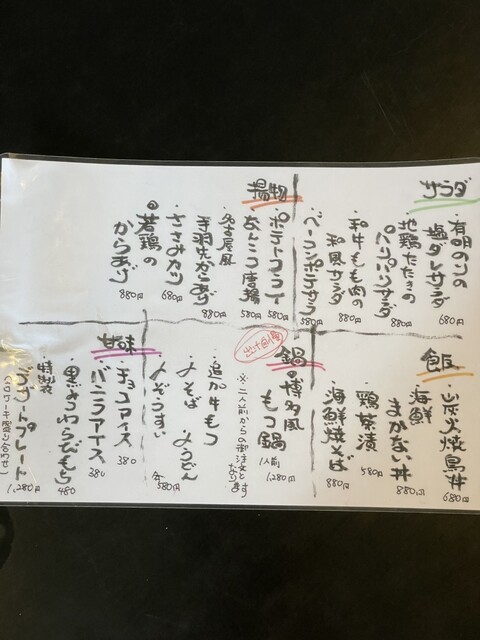 サラダ
・有明のりの
塩ダレサラダ
680円
・地鶏たたきの
パリパリサラダ
880円
・和牛もも肉の
和風サラダ
880円
・ベーコンポテサラ
580円
揚物
・ポテトフライ
580円
・なんこつ唐揚
580円
・名古屋風
手羽先からあげ
880円
・ささみカツ
680円
・若鶏の
からあげ
880円
飯
・炭火焼鳥丼
680円
・海鮮
まかない丼
880円
・鶏茶漬
580円
・海鮮焼そば
880円
鍋
博多風
もつ鍋
1人前
1,280円
※二人前からの御注文と
なります
・追加牛もつ
〆そば
〆うどん
〆ぞうすい
各580円
甘味
・チョコアイス
380
・バニラアイス
380
・黒みつわらびもち
480
・特製
デザートプレート
1,280円